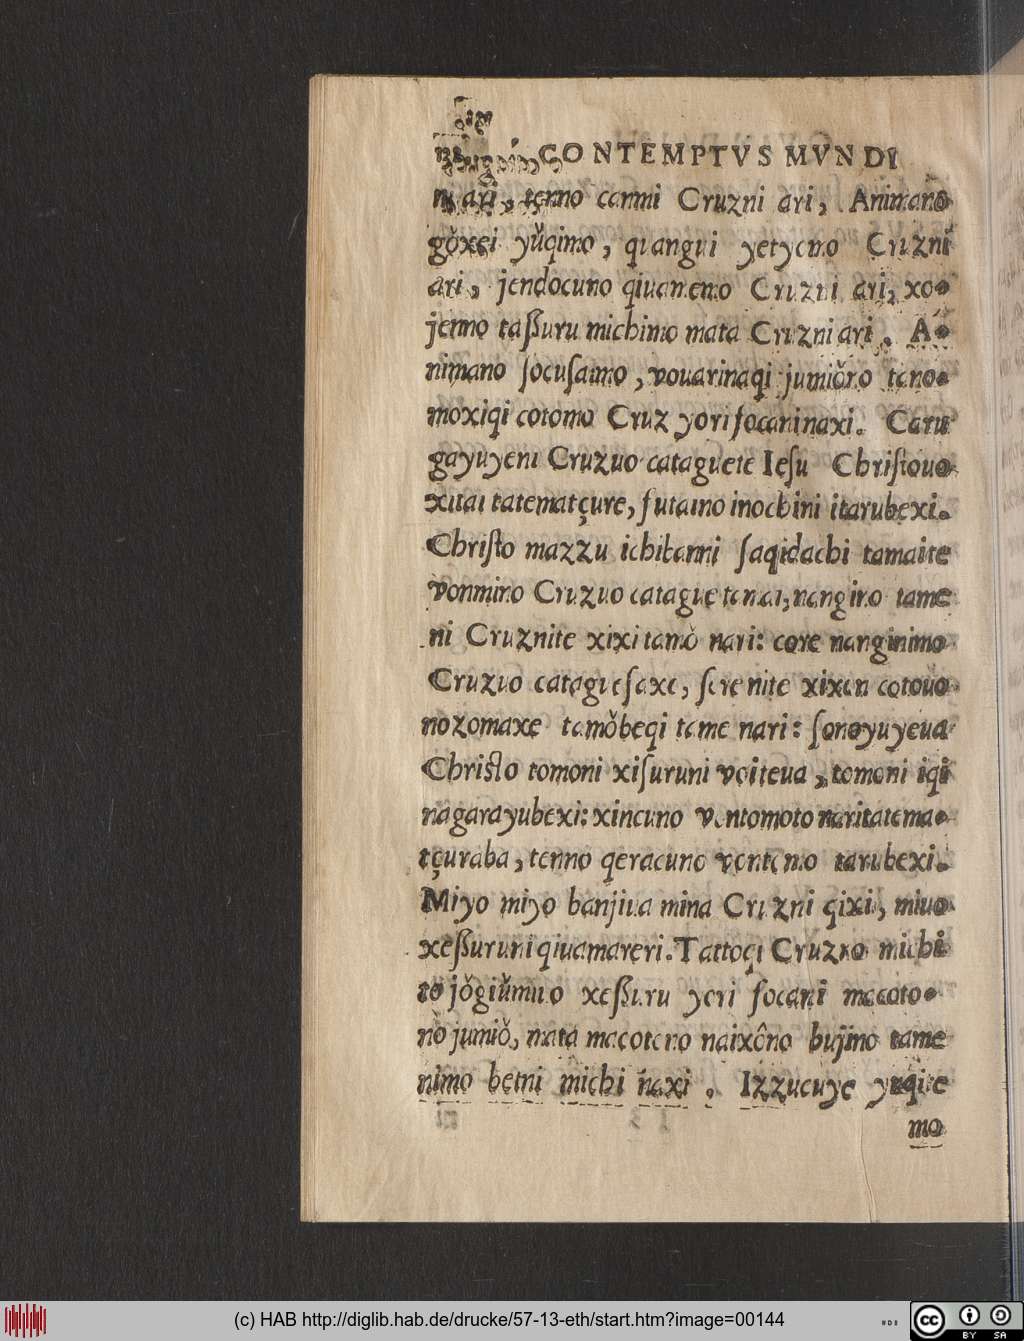 CONTEMPTVS MVNDI
ni ari, tenno canni Cruzni ari, Animano
gǒxei yǔqimo, qiangui yetyemo Cruzni
ari, jendocuno qiuamemo Cruzni ari, xo-
jenno taßuru michimo mata Cruzni ari. A-
nimano socusaimo, vouarinaqi jumiǒno tano-
moxiqi cotomo Cruz yori focani naxi. Caru
gayuyeni Cruzuo cataguete Iesu Christouo
xitai tatematçure, futaino inochini itarubexi.
Christo mazzu ichibanni saqidachi tamaite
vonmino Cruzuo catague tamai, nangino tame
ni Cruznite xixi tamǒ nari: core nanginimo
Cruzuo catague saxe, sore nite xixen cotouo
nozomaxe tamǒbeqi tame nari: sono yuyeua
Christo tomoni xisuruni voiteua, tomoni iqi
nagarayubexi: xincuno vontomoto naritatema-
tçuraba, tenno qeracuno vontomo tarubexi.
Miyo miyo banjiua mina Cruzni qixi, miuo
xeßuruni qiuamareri. Tattoqi Cruzno michi
to jǒgiǔni miuo xeßuru yori focani macoto-
no jumiǒ, mata macotono naixôno bujino tame
nimo betni michi naxi. Izzucuye yuqite
mo
(c) HAB http://diglib.hab.de/drucke/57-13-eth/start.htm?image=00144
cc BY SA